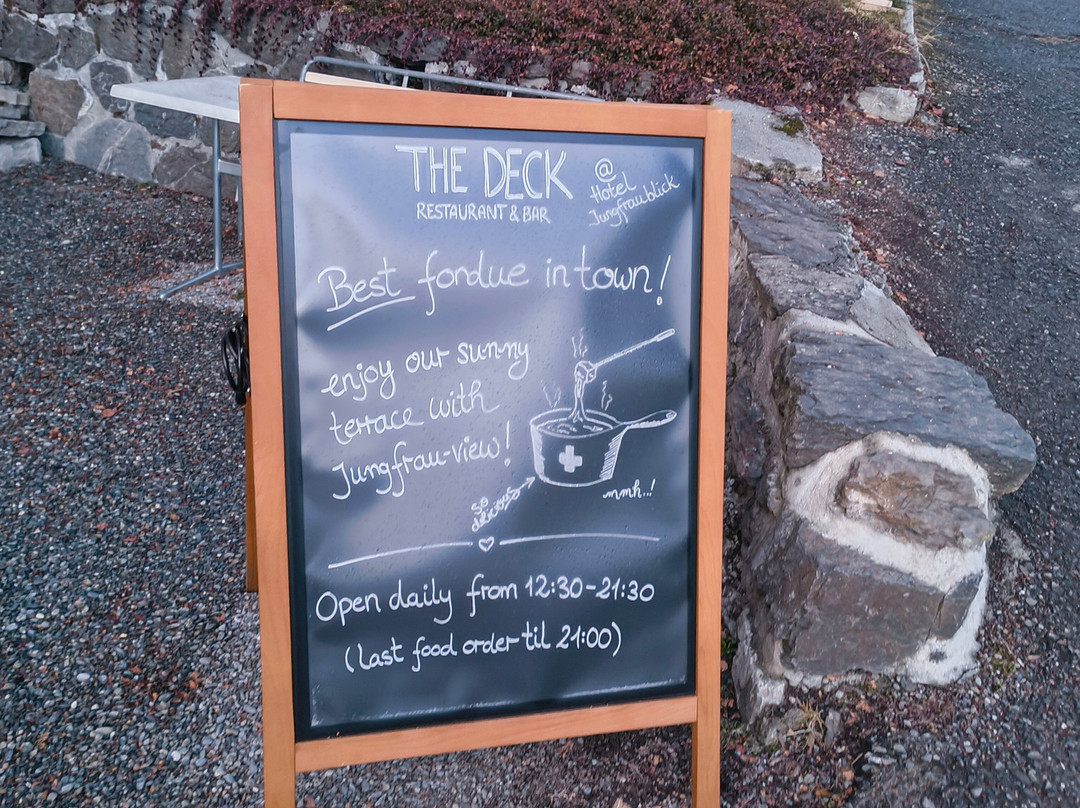 THE DECK
RESTAURANT & BAR
@
Hotel
Jungfraublick
Best fondue in town!
enjoy our sunny
terrace with
Jungfrau-view!
so
delicious
mmh..!
Open daily from 12:30-21:30
(last food order til 21:00)